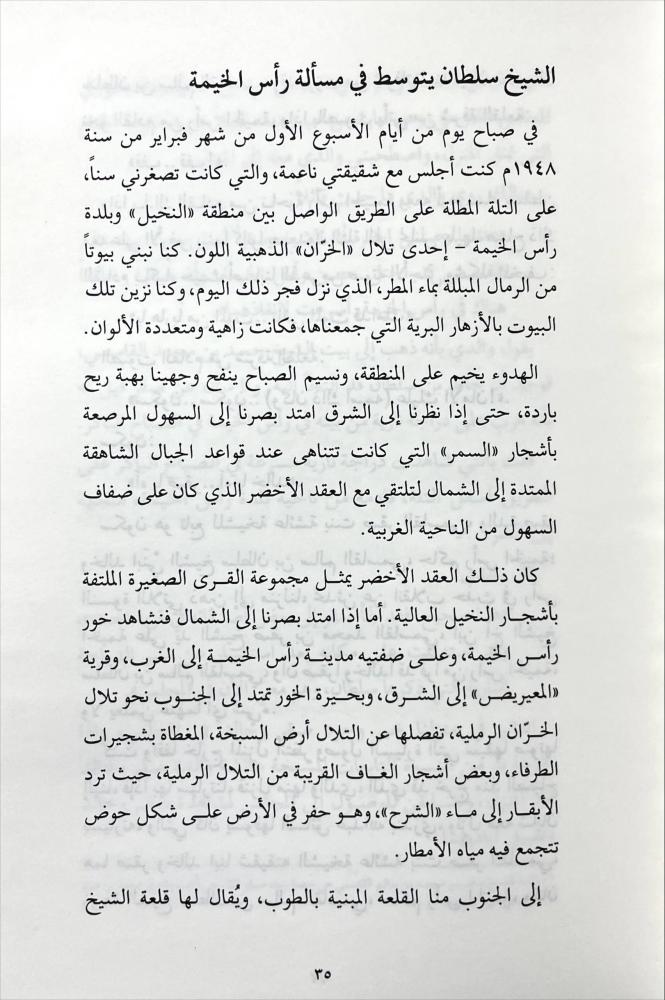 الشيخ سلطان يتوسط في مسألة رأس الخيمة
في صباح يوم من أيام الأسبوع الأول من شهر فبراير من سنة
١٩٤٨م كنت أجلس مع شقيقتي ناعمة، والتي كانت تصغرني سناً،
على التلة المطلة على الطريق الواصل بين منطقة «النخيل» وبلدة
رأس الخيمة – إحدى تلال «الخرّان» الذهبية اللون. كنا نبني بيوتاً
من الرمال المبللة بماء المطر، الذي نزل فجر ذلك اليوم، وكنا نزين تلك
البيوت بالأزهار البرية التي جمعناها، فكانت زاهية ومتعددة الألوان.
الهدوء يخيم على المنطقة، ونسيم الصباح ينفح وجهينا بهبة ريح
باردة، حتى إذا نظرنا إلى الشرق امتد بصرنا إلى السهول المرصعة
بأشجار «السمر» التي كانت تتناهى عند قواعد الجبال الشاهقة
الممتدة إلى الشمال لتلتقي مع العقد الأخضر الذي كان على ضفاف
السهول من الناحية الغربية.
كان ذلك العقد الأخضر يمثل مجموعة القرى الصغيرة الملتفة
بأشجار النخيل العالية. أما إذا امتد بصرنا إلى الشمال فنشاهد خور
رأس الخيمة، وعلى ضفتيه مدينة رأس الخيمة إلى الغرب، وقرية
«المعيريض» إلى الشرق، وبحيرة الخور تمتد إلى الجنوب نحو تلال
الخرّان الرملية، تفصلها عن التلال أرض السبخة، المغطاة بشجيرات
الطرفاء، وبعض أشجار الغاف القريبة من التلال الرملية، حيث ترد
الأبقار إلى ماء «الشرح»، وهو حفر في الأرض على شكل حوض
تتجمع فيه مياه الأمطار.
إلى الجنوب منا القلعة المبنية بالطوب، ويُقال لها قلعة الشيخ
٣٥